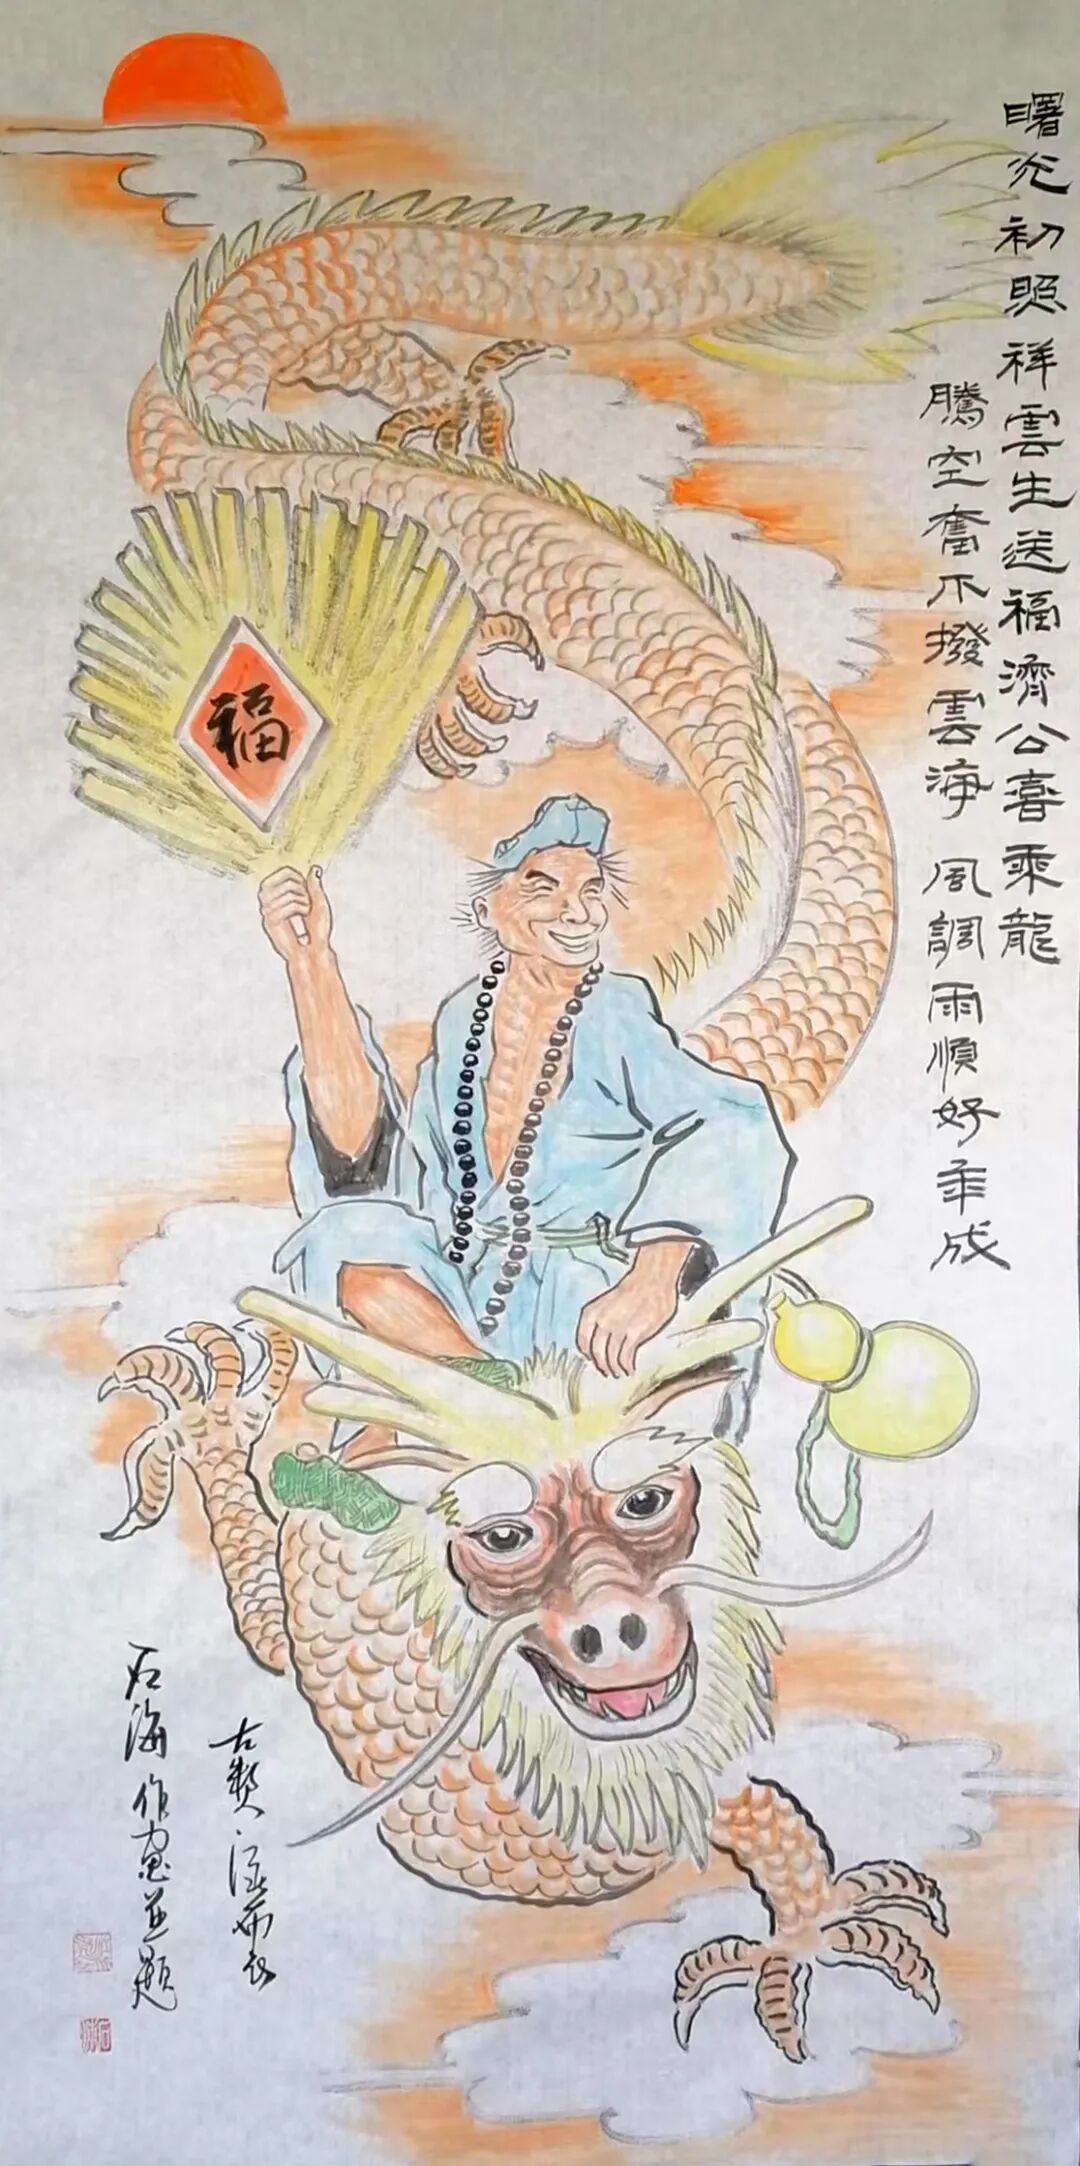 曙光初照祥雲生送福濟公喜乘龍
騰空奮爪撥雲海 風調雨順好年成
福
石海作畫並題